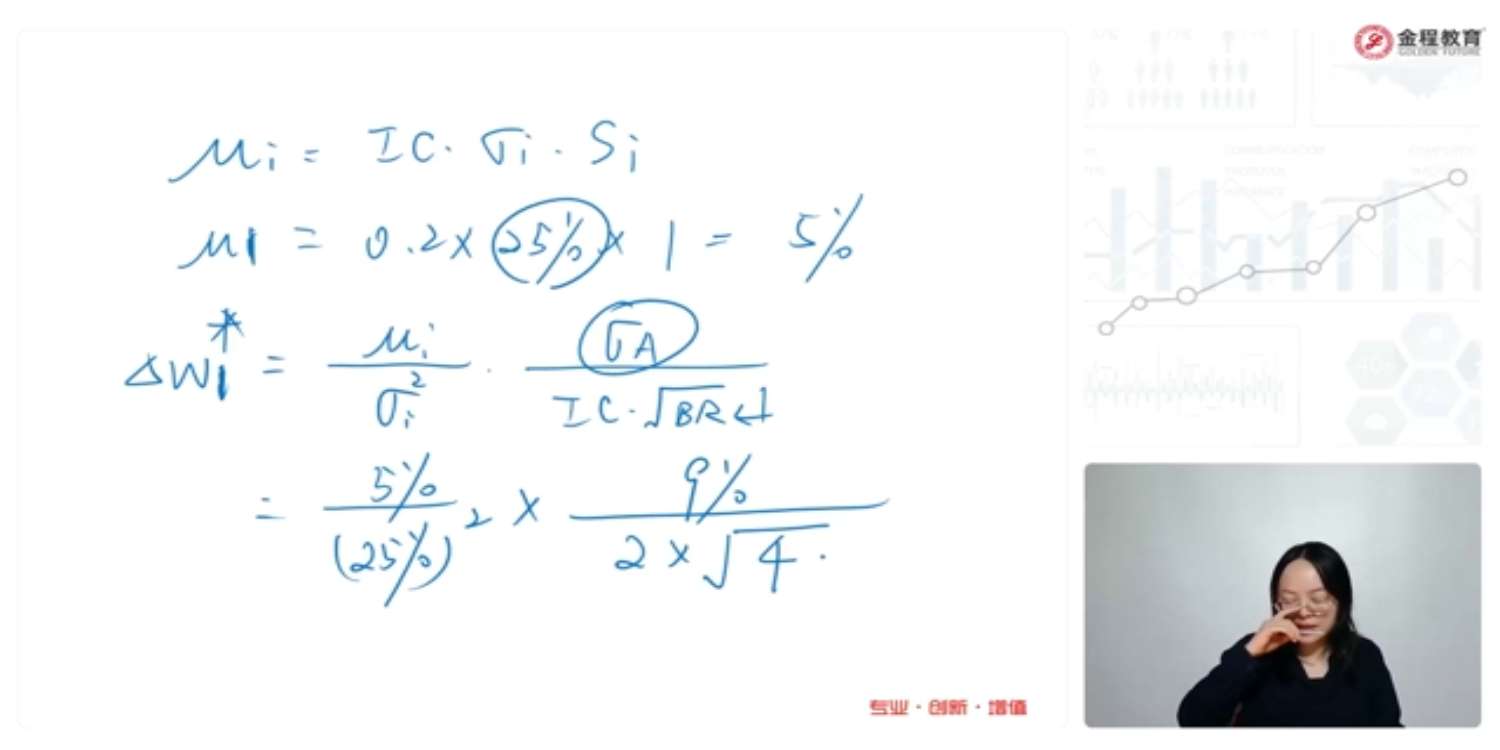 金程教育
GOLDEN FUTURE
μi = IC · σi · Si
μ1 = 0.2 × 25% × 1 = 5%
ΔW1* = μi / σi² · σA / IC · √BR
= 5% / (25%)² × 9% / 2 × √4 .
专业 · 创新 · 增值